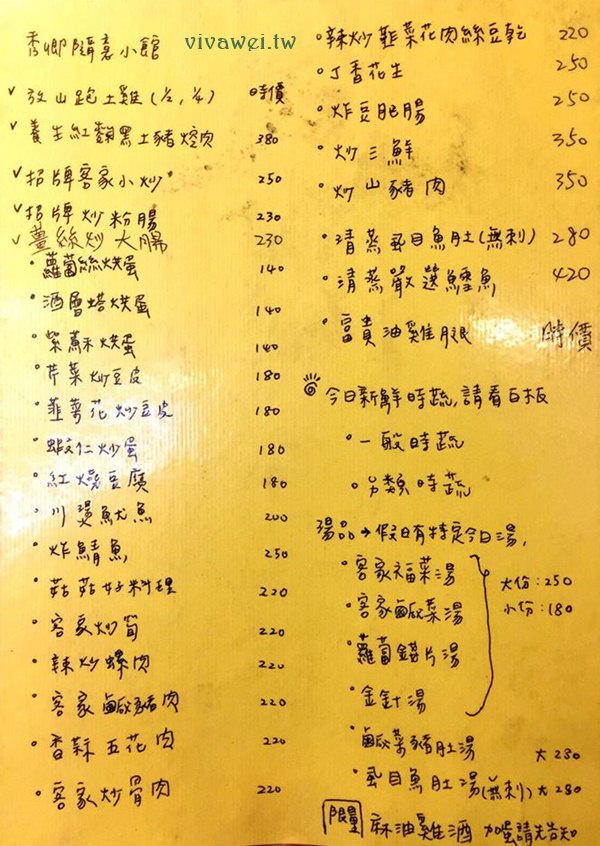 vivawei.tw
秀卿隨意小館
✓ 放山跑土雞(1/2, 1/4) 時價
✓ 養生紅麴黑土豬焢肉 380
✓ 招牌客家小炒 250
✓ 招牌炒粉腸 230
✓ 薑絲炒大腸 230
• 蘿蔔絲烘蛋 140
• 酒層塔烘蛋 140
• 紫蘇烘蛋 140
• 芹菜炒豆皮 180
• 韭菜花炒豆皮 180
• 蝦仁炒蛋 180
• 紅燒豆腐 180
• 川燙魷魚 200
• 炸鯖魚 250
• 菇菇好料理 220
• 客家炒筍 220
• 辣炒螺肉 220
• 客家鹹豬肉 220
• 香蒜五花肉 220
• 客家炒骨肉 220
• 辣炒韭菜花肉絲豆乾 220
• 丁香花生 250
• 炸豆肥腸 250
• 炒三鮮 350
• 炒山豬肉 350
• 清蒸虱目魚肚(無刺) 280
• 清蒸嚴選鱈魚 420
• 富貴油雞腿 時價
今日新鮮時蔬,請看白板
• 一般時蔬
• 另類時蔬
湯品→假日有特定今日湯,
• 客家福菜湯
• 客家鹹菜湯
• 蘿蔔錢片湯
• 金針湯
大份:250
小份:180
• 鹹菜豬肚湯 大280
• 虱目魚肚湯(無刺) 大280
限量 麻油雞酒 加蛋請先告知